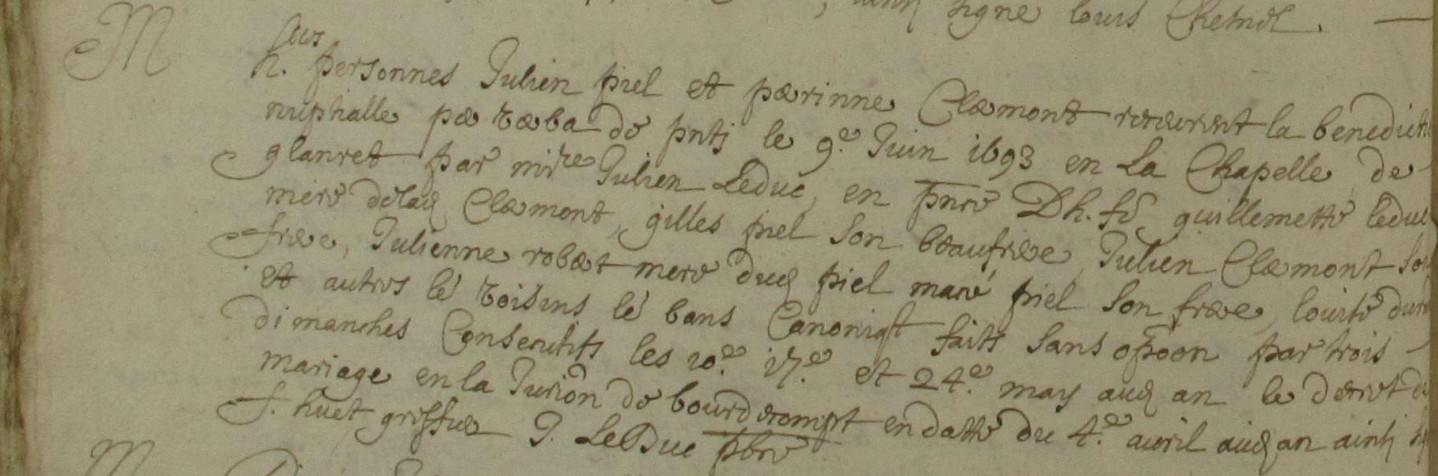 , ainsi signé louis Chesnel.
M
h. personnes Julien piel et perrinne Clermont recevrent la benedicti
nuptialle par verba de pnti le 9.e Juin 1693 en La Chapelle de
glanret par mire Julien Leduc, en pnce Dh. fe guillemette leduc
mere delad Clermont, gilles piel son beaufrere, Julien Clermont son
frere, Julienne robert mere dud piel marc piel son frere, louise
et autres le voisins le bans Canoniqt faits sans opoon par trois
dimanches Consecutifs les 10.e 17.e et 24.e may aud an le decret de
mariage en la Juriōn de bourd en datte du 4.e auril aud an ainsi
f. huet greffier J. LeDuc pbre
M